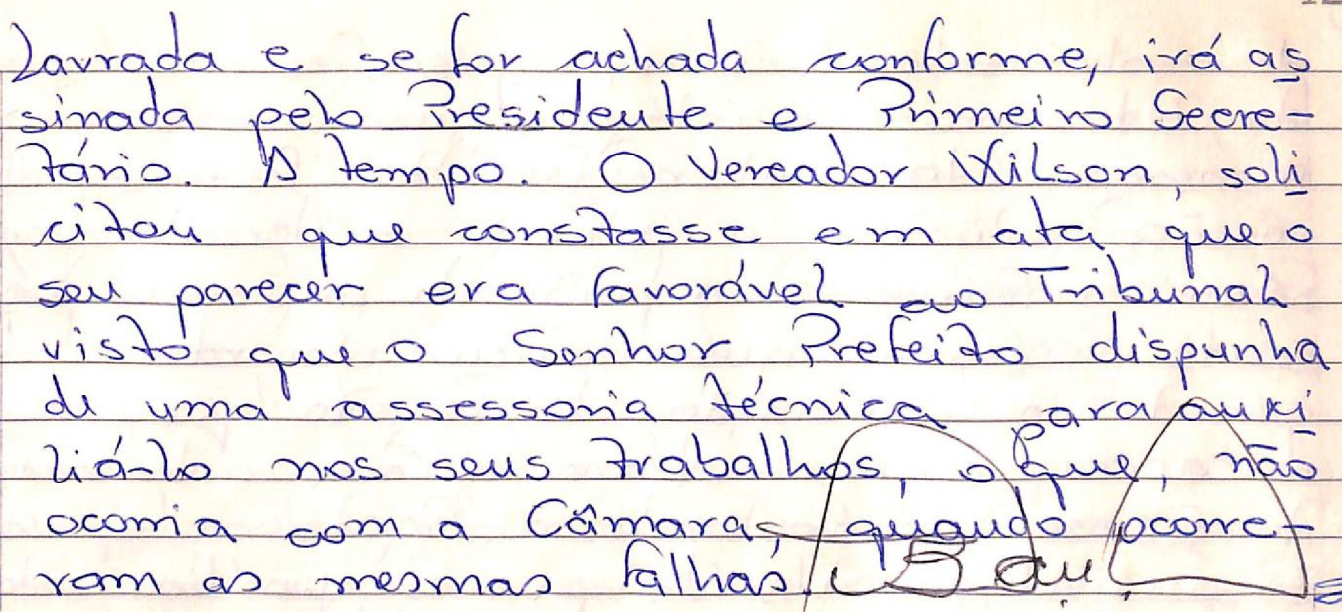 Lavrada e se for achada conforme, irá as
sinada pelo Presidente e Primeiro Secre-
tário. A tempo. O Vereador Wilson, soli
citou que constasse em ata que o
seu parecer era favorável ao Tribunal
visto que o Senhor Prefeito dispunha
de uma assessoria técnica para auxi
liá-lo nos seus trabalhos, o que, não
ocorria com a Câmara, quando ocorre-
ram as mesmas falhas.